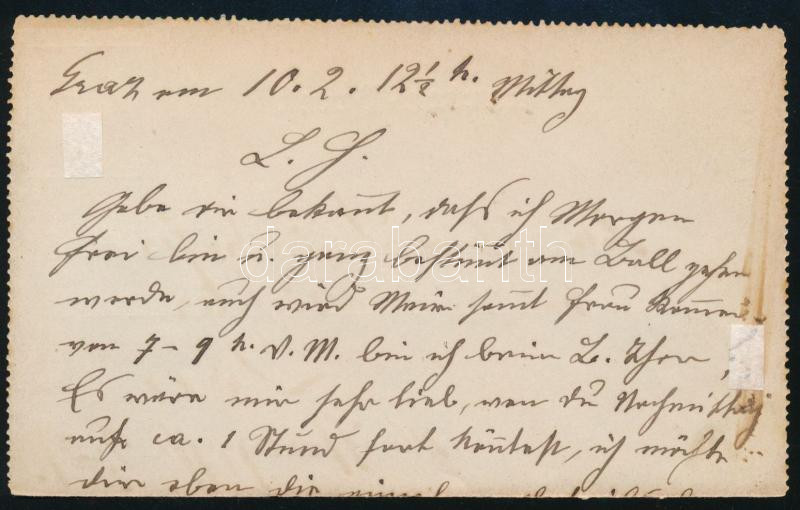 Graz am 10. 2. 12½ h. Mittag
L. H.
Gebe dir bekannt, dass ich Morgen
frei bin u. ganz bestimt am Ball gehen
werde, auch wird Meir samt Frau kommen
von 7 - 9 h. V. M. bin ich beim L. Thor,
Es wäre mir sehr lieb, wen du Nachmittag
auf ca. 1 Stund fort köntest, ich möchte
dir eben die
darabanth.com